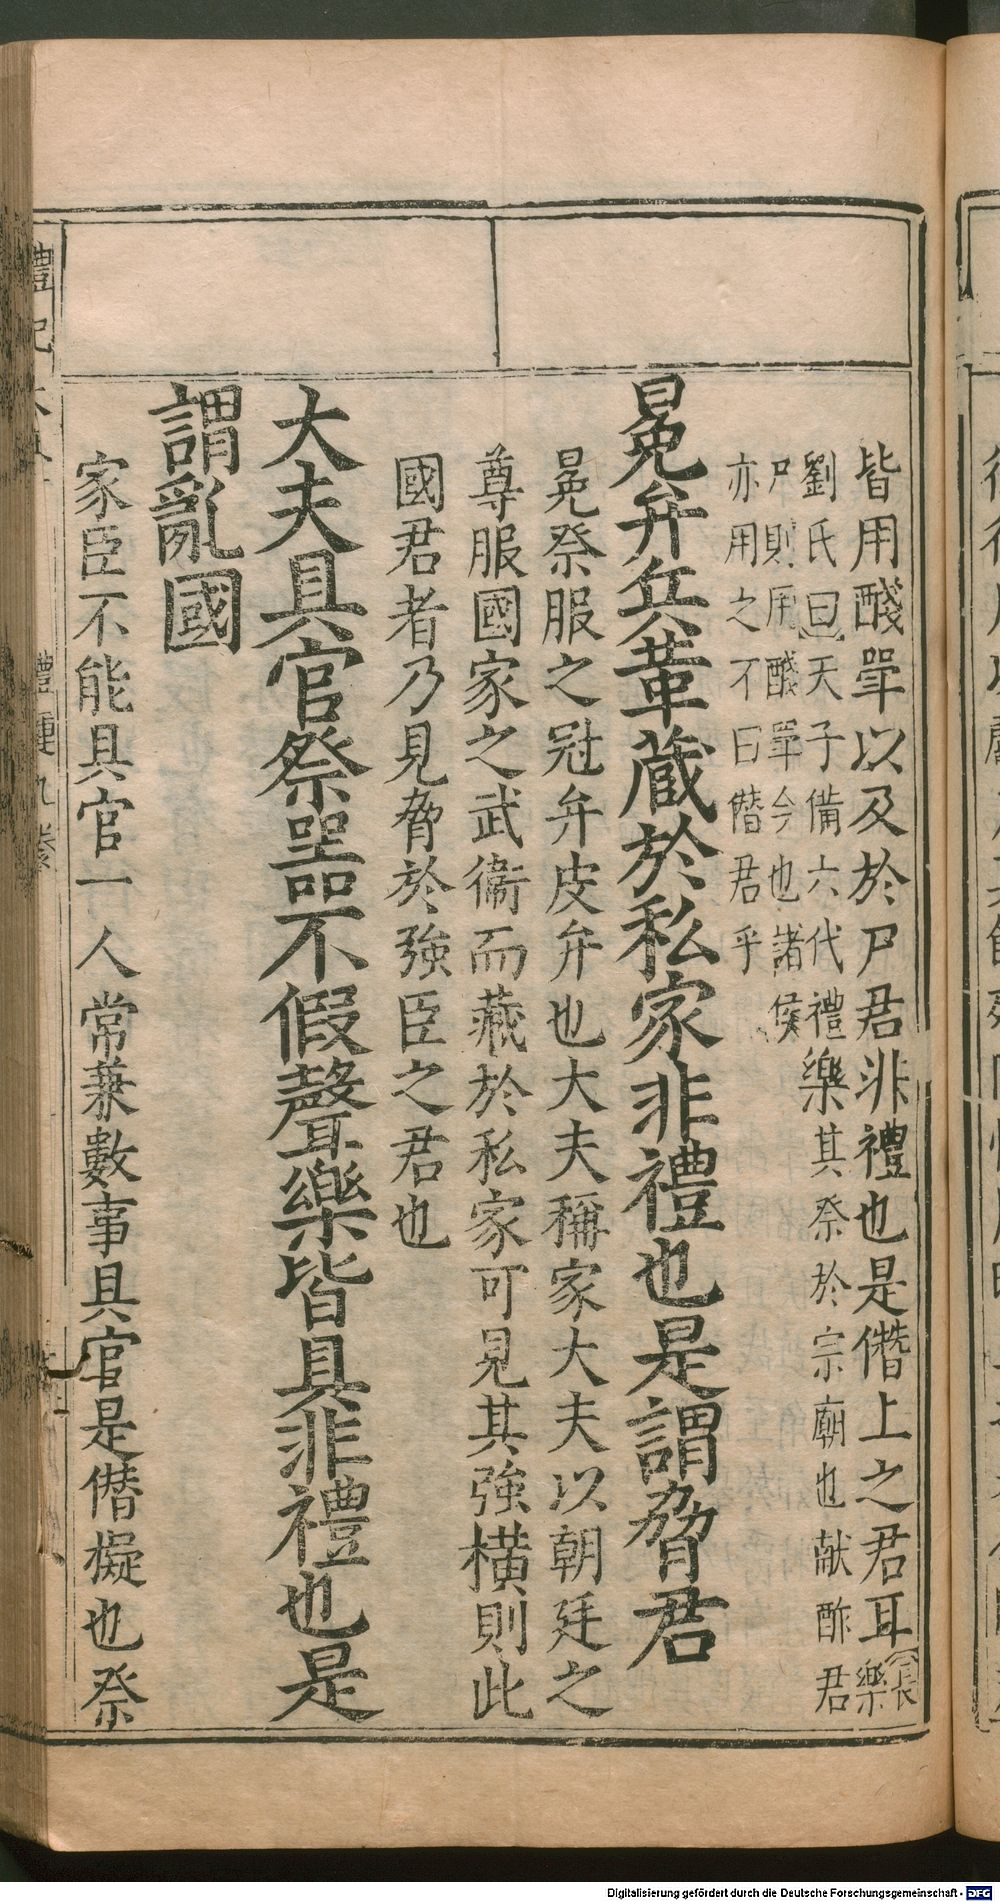 皆用醆斝以及於尸君非禮也是僭上之君耳(長樂
劉氏曰)天子備六代禮樂其祭於宗廟也献酢君
尸則用醆斝今也諸侯
亦用之不曰僭君乎
冕弁兵革蔵於私家非禮也是謂脅君
冕祭服之冠弁皮弁也大夫稱家大夫以朝廷之
尊服國家之武衞而藏於私家可見其強橫則此
國君者乃見脅於強臣之君也
大夫具官祭噐不假聲樂皆具非禮也是
謂亂國
家臣不能具官一人常兼數事具官是僭擬也祭
禮記
禮運九卷
Digitalisierung gefördert durch die Deutsche Forschungsgemeinschaft - DFG